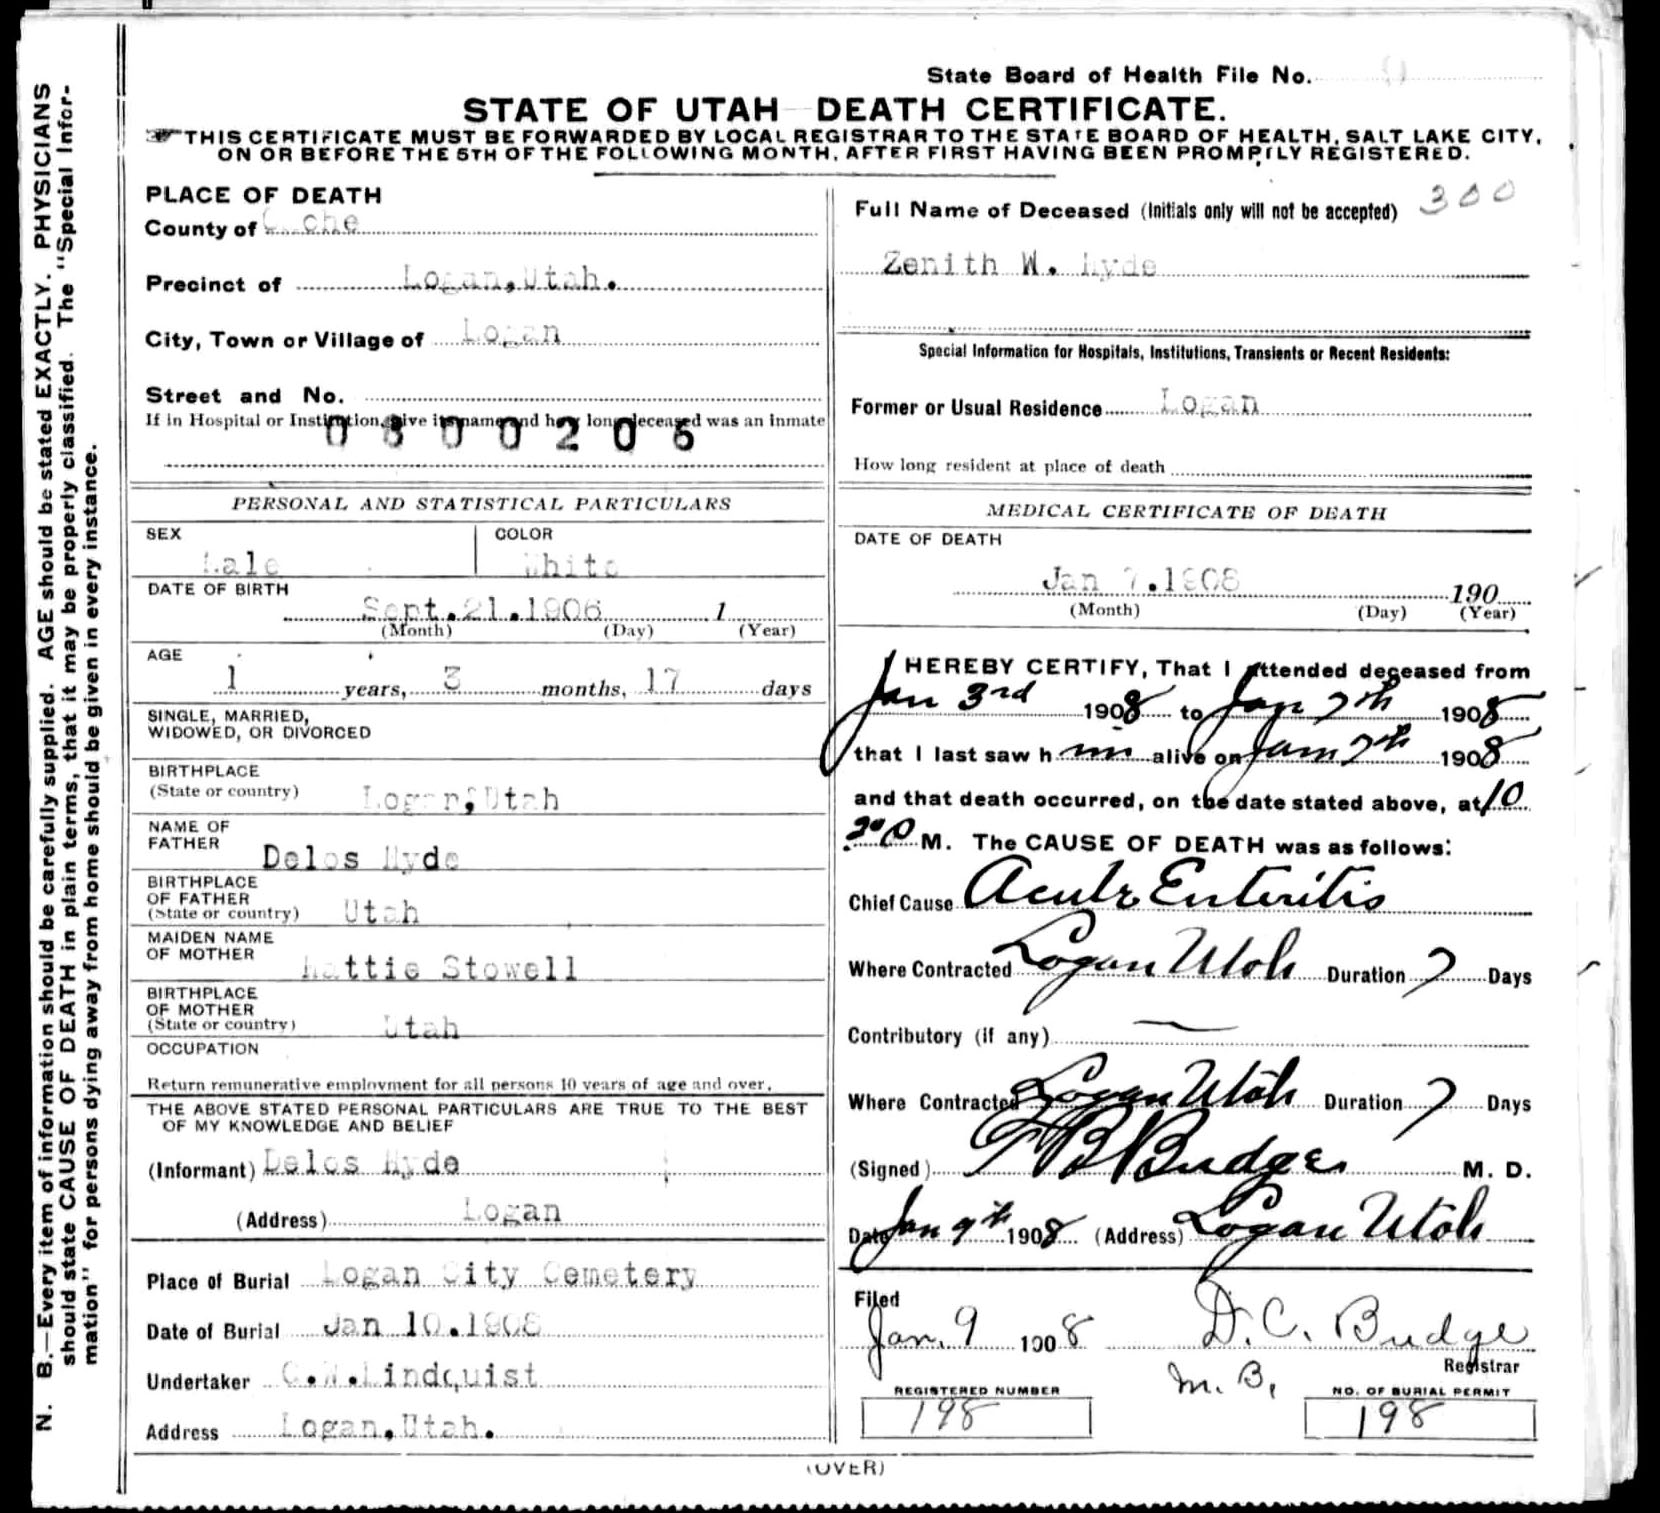 State Board of Health File No.
STATE OF UTAH DEATH CERTIFICATE.
THIS CERTIFICATE MUST BE FORWARDED BY LOCAL REGISTRAR TO THE STATE BOARD OF HEALTH, SALT LAKE CITY,
ON OR BEFORE THE 5TH OF THE FOLLOWING MONTH, AFTER FIRST HAVING BEEN PROMPTLY REGISTERED.
N. B.—Every item of information should be carefully supplied. AGE should be stated EXACTLY. PHYSICIANS
should state CAUSE OF DEATH in plain terms, that it may be properly classified. The "Special Infor-
mation" for persons dying away from home should be given in every instance.
PLACE OF DEATH
County of Cache
Precinct of Logan, Utah.
City, Town or Village of Logan
Street and No.
If in Hospital or Institution, give its name and how long deceased was an inmate
0800206
PERSONAL AND STATISTICAL PARTICULARS
SEX COLOR
Male White
DATE OF BIRTH
Sept.21.1906 1
(Month) (Day) (Year)
AGE
1 years, 3 months, 17 days
SINGLE, MARRIED,
WIDOWED, OR DIVORCED
BIRTHPLACE
(State or country) Logan, Utah
NAME OF
FATHER Delos Hyde
BIRTHPLACE
OF FATHER
(State or country) Utah
MAIDEN NAME
OF MOTHER Hattie Stowell
BIRTHPLACE
OF MOTHER
(State or country) Utah
OCCUPATION
Return remunerative employment for all persons 10 years of age and over.
THE ABOVE STATED PERSONAL PARTICULARS ARE TRUE TO THE BEST
OF MY KNOWLEDGE AND BELIEF
(Informant) Delos Hyde
(Address) Logan
Place of Burial Logan City Cemetery
Date of Burial Jan 10.1908
Undertaker C.W.Lindquist
Address Logan, Utah.
Full Name of Deceased (Initials only will not be accepted) 300
Zenith W. Hyde
Special Information for Hospitals, Institutions, Transients or Recent Residents:
Former or Usual Residence Logan
How long resident at place of death
MEDICAL CERTIFICATE OF DEATH
DATE OF DEATH
Jan 7.1908 190
(Month) (Day) (Year)
I HEREBY CERTIFY, That I attended deceased from
Jan 3rd 1908 to Jan 7th 1908
that I last saw him alive on Jan 7th 1908
and that death occurred, on the date stated above, at 10
M. The CAUSE OF DEATH was as follows:
Chief Cause Acute Enteritis
Where Contracted Logan Utah Duration 7 Days
Contributory (if any) —
Where Contracted Logan Utah Duration 7 Days
(Signed) T B Budge M. D.
Date Jan 9th 1908 (Address) Logan Utah
Filed
Jan. 9 1908 D. C. Budge
Registrar
M. B.
REGISTERED NUMBER NO. OF BURIAL PERMIT
198 198
(OVER)